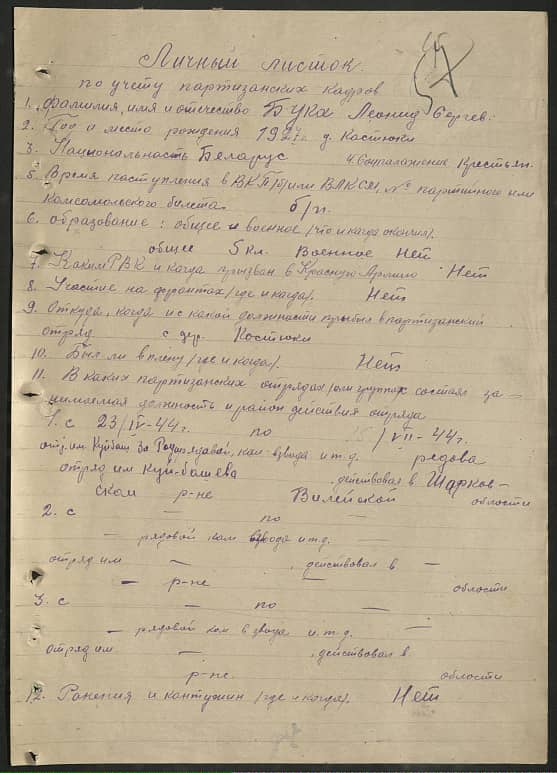 Личный листок
по учету партизанских кадров
1. Фамилия, имя и отчество Бука Леонид Сергев.
2. Год и место рождения 1927г. д. Костюки
3. Национальность Беларус 4. Соцположение Крестьян.
5. Время поступления в ВКП(б) или ВЛКСМ, № партийного или
комсомольского билета б/п.
6. Образование: общее и военное /что и когда окончил/.
общее 5 кл. Военное Нет
7. Каким РВК и когда призван в Красную Армию Нет
8. Участие на фронтах /где и когда/. Нет
9. Откуда, когда и с какой должности прибыл в партизанский
отряд с дер. Костюки
10. Был ли в плену /где и когда/. Нет
11. В каких партизанских отрядах /или группах состоял за-
нимаемая должность и район действия отряда
1. с 23/IV-44г. по /VII-44г.
отр. им Куйбыш. ком- взвода и т.д. рядова
отряд им Куй-бышева , действовал в Шарков-
ском р-не Вилейской области
2. с — по —
— рядовой ком взвода и т.д. —
отряд им — , действовал в —
— р-не — области
3. с — по —
— рядовой ком взвода и т.д. —
отряд им. — , действовал в
— р-не. области
12. Ранения и контузии /где и когда/. Нет